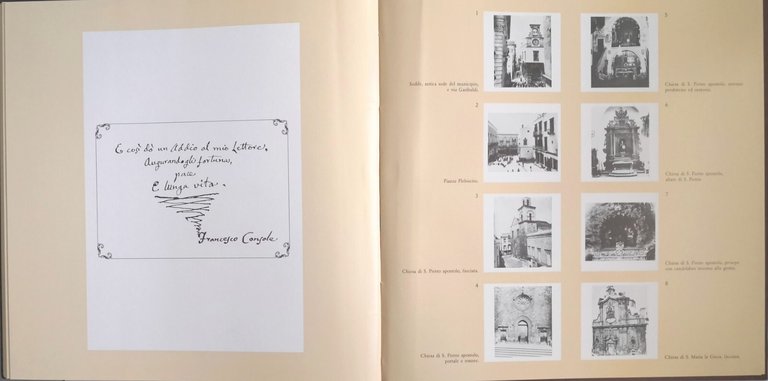 E così dò un Addio al mio Lettore,
Augurandogli fortuna,
pace
E lunga vita.
Francesco Console
1
Sedile, antica sede del municipio,
e via Garibaldi.
2
Piazza Plebiscito.
3
Chiesa di S. Pietro apostolo, facciata.
4
Chiesa di S. Pietro apostolo,
portale e rosone.
5
Chiesa di S. Pietro apostolo,
presbiterio ed
6
Chiesa di S. Pietro apostolo,
altare di S. Pietro
7
Chiesa di S. Pietro apostolo, presepe
con candelabri intorno alla grotta.
8
Chiesa di S. Maria la Greca, facciata.